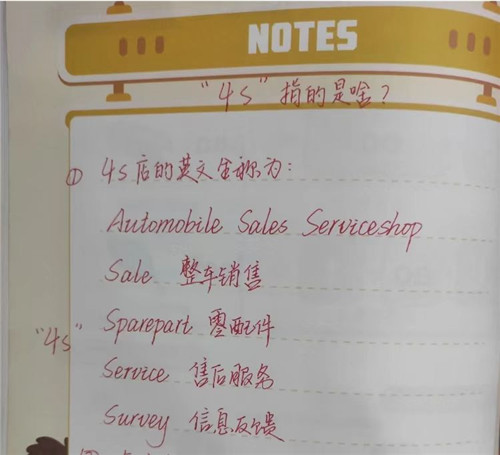 NOTES
"4S"指的是啥?
① 4S店的英文全称为:
Automobile Sales Serviceshop
Sale 整车销售
"4S"
Sparepart 零配件
Service 售后服务
Survey 信息反馈